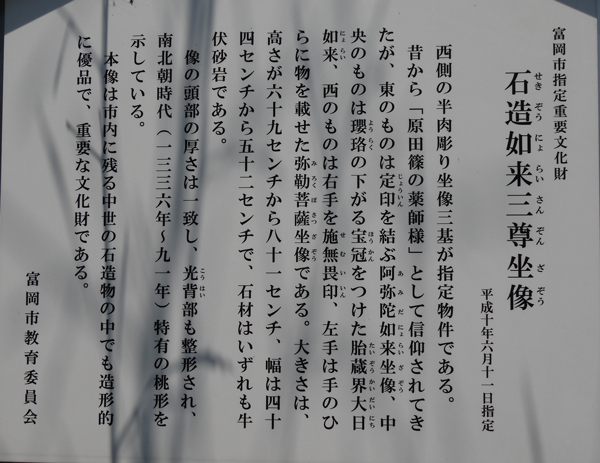 富岡市指定重要文化財
石造如来三尊坐像
せきぞうにょらいさんぞんざぞう
平成十年六月十一日指定
西側の半肉彫り坐像三基が指定物件である。
昔から「原田篠の薬師様」として信仰されてき
たが、東のものは定印を結ぶ阿弥陀如来坐像、中
じょういん
あみだにょらいざぞう
央のものは瓔珞の下がる宝冠をつけた胎蔵界大日
ようらく
ほうかん
たいぞうかいだいにち
如来、西のものは右手を施無畏印、左手は手のひ
にょらい
せむいいん
らに物を載せた弥勒菩薩坐像である。大きさは、
みろくぼさつざぞう
高さが六十九センチから八十一センチ、幅は四十
四センチから五十二センチで、石材はいずれも牛
伏砂岩である。
像の頭部の厚さは一致し、光背部も整形され、
こうはい
南北朝時代（一三三六年～九一年）特有の桃形を
示している。
本像は市内に残る中世の石造物の中でも造形的
に優品で、重要な文化財である。
富岡市教育委員会